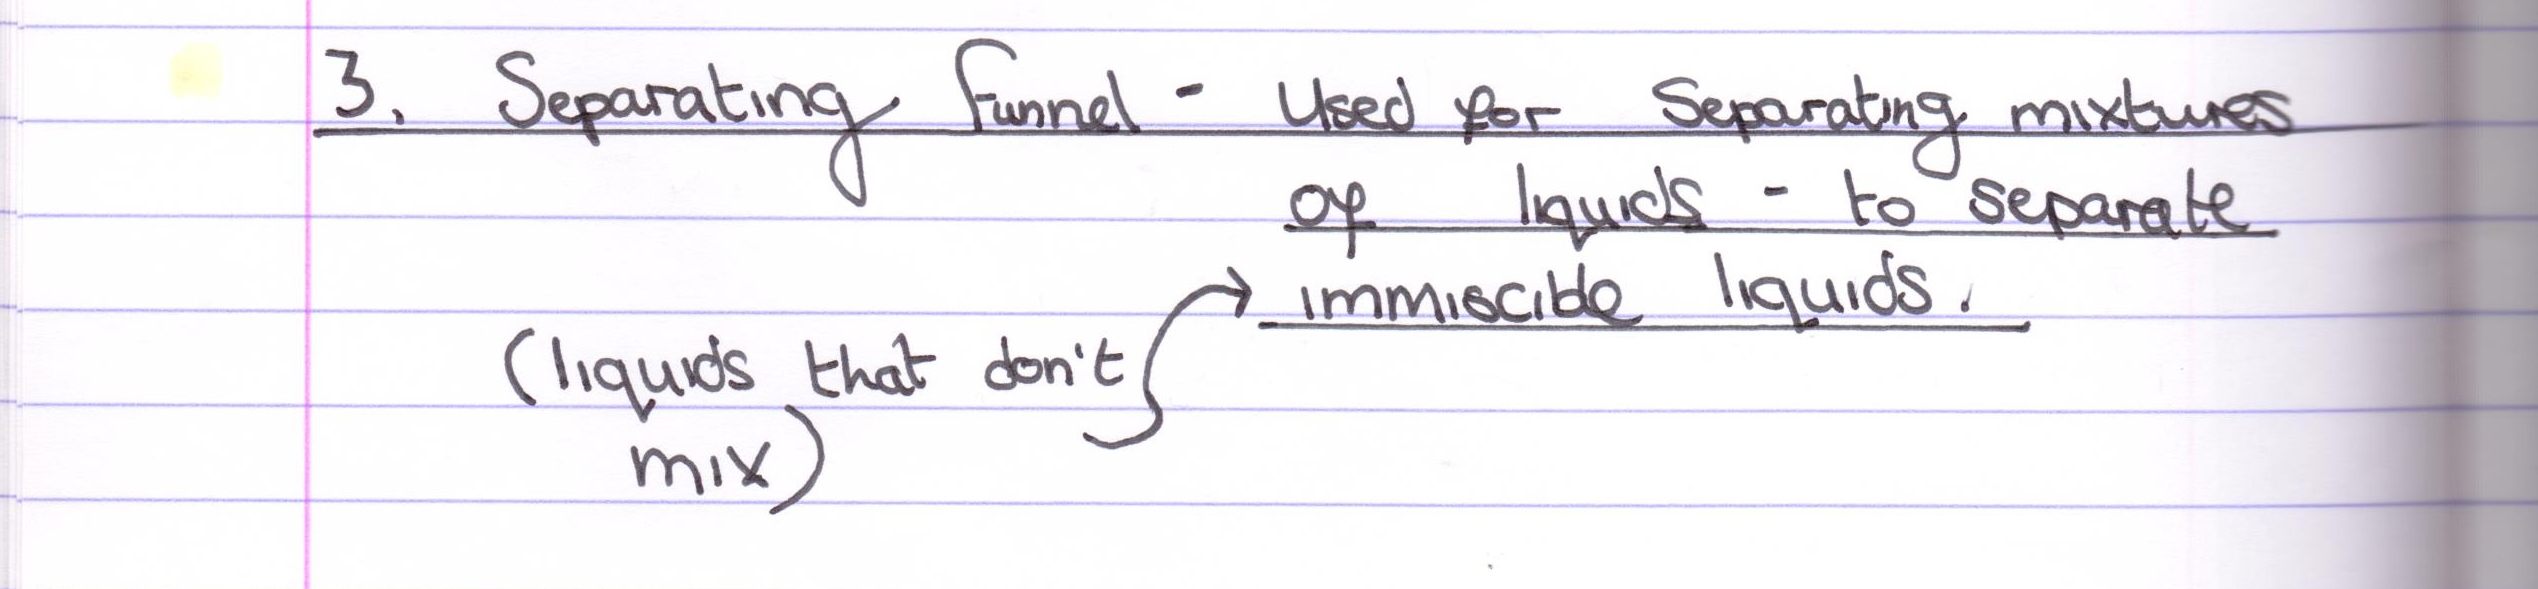 3. Separating funnel - Used for Separating mixtures
of liquids - to separate
→ immiscible liquids.
(liquids that don't
mix)